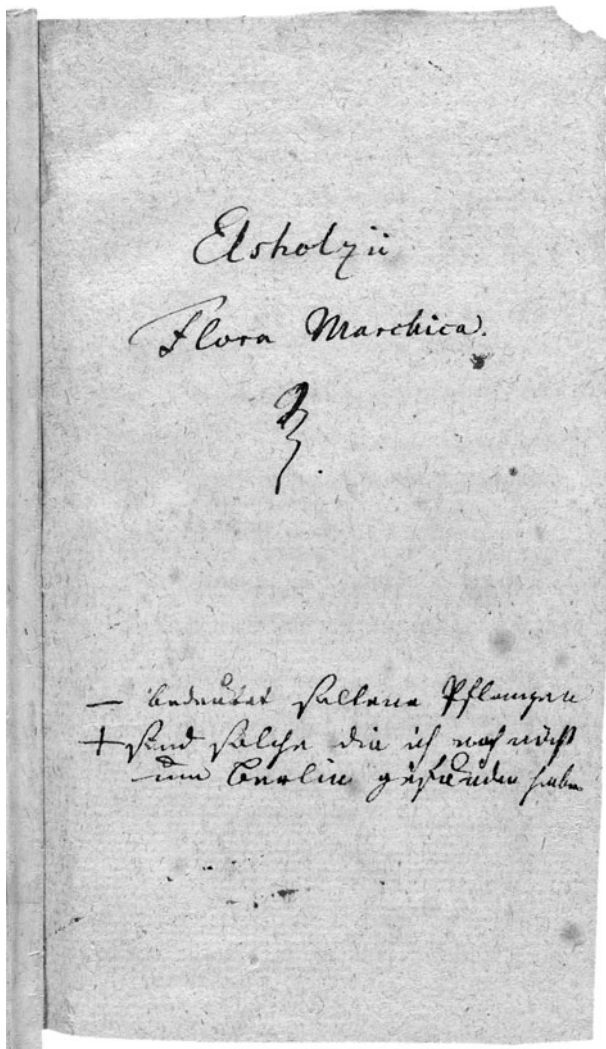 Elsholzii
Flora Marchica.
— bedeutet seltene Pflanzen
+ sind solche die ich noch nicht
um Berlin gefunden habe